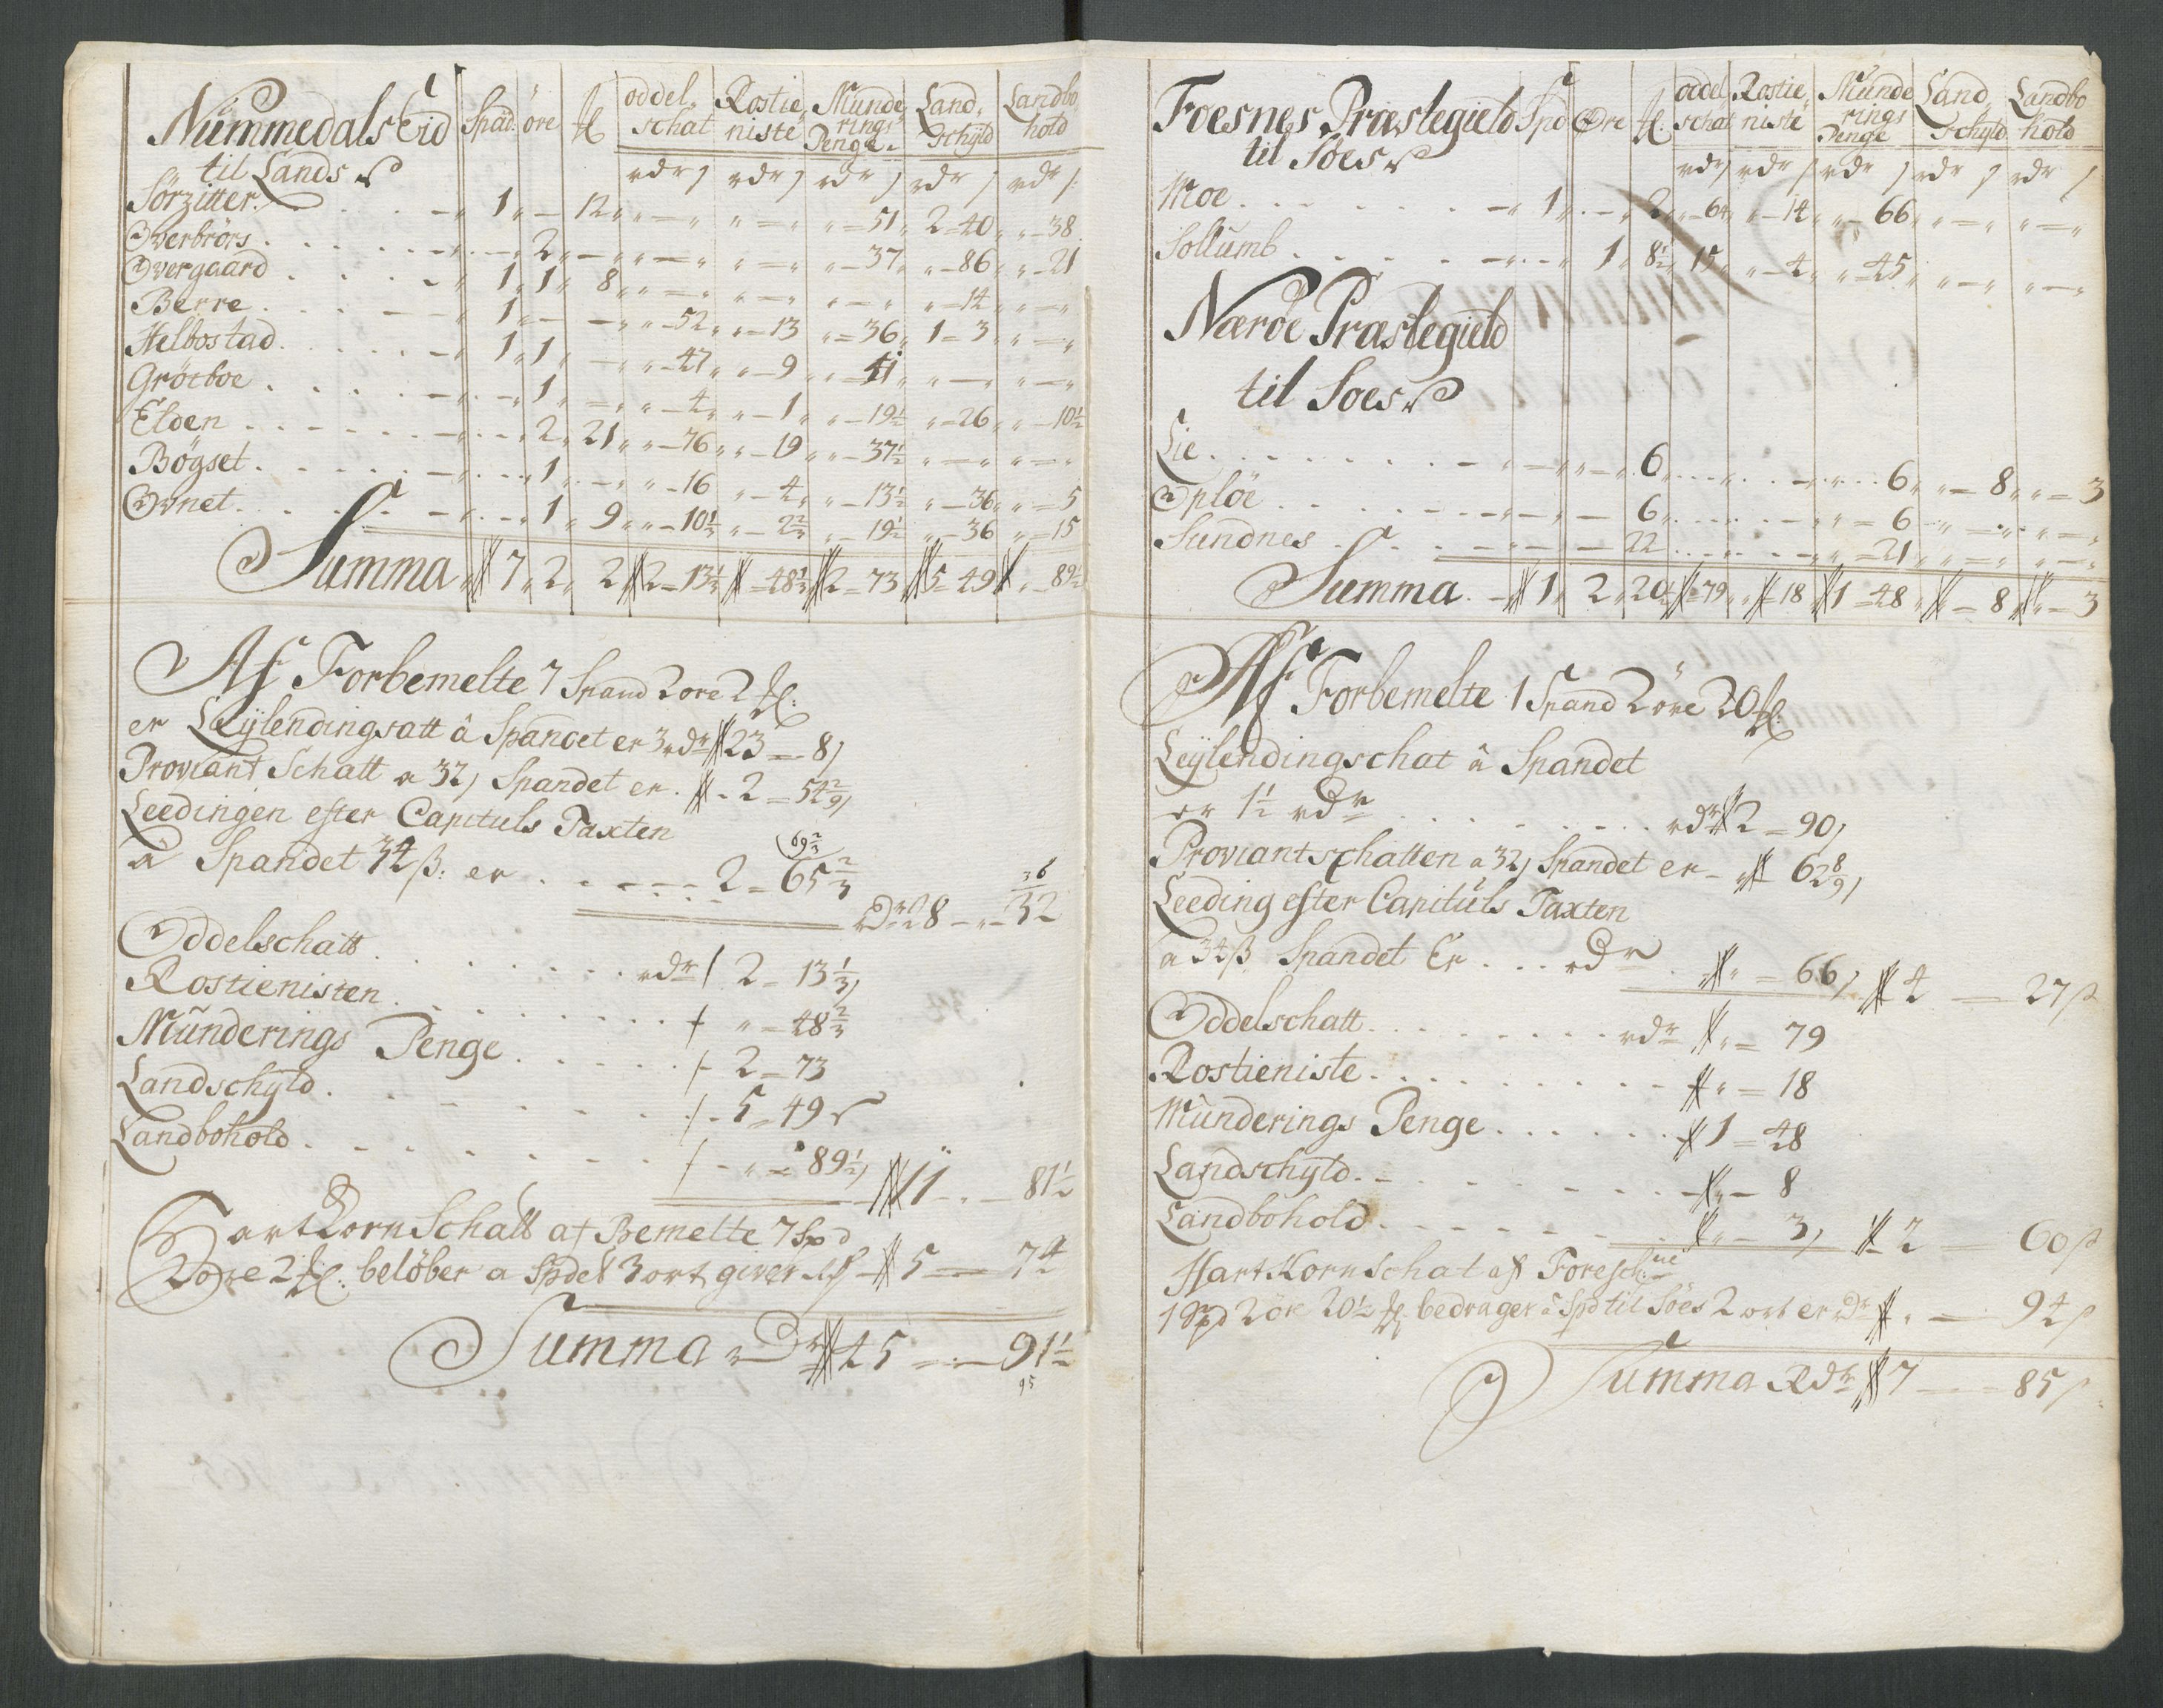 Nümmedals Eid Spãd: öre ₰l oddel„ schat Rostie„ niste Munde„ rings Penge. Land„ Schÿld Landbo„ hold
til Lands
rdr ſ rdr ſ rdr ſ rdr ſ rdr ſ
Sörzitter. . . . - „ 1 „ — 12 „ „ — „ „ — „ „ — 51 „ 2 — 40 „ „ — 38
Overbrörs . . . . . — „ 2 „ — „ „ — „ „ — „ „ — 37 „ „ — 86 „ „ — 21
Overgaard . . . . „ 1 „ 1 „ 8 „ „ — „ „ — „ „ — „ „ — 14 „ „ — „
Berre . . . . „ 1 „ — „ — „ „ — 52 „ „ — 13 „ — 36 „ 1 — 3 „ „ — „
Helbostad. . . . . „ 1 „ 1 „ — „ „ — 47 „ „ — 9 „ „ — 41 „ „ — „ „ — „
Grötboe . . . . — „ 1 „ — „ „ — 4 „ „ — 1 „ „ — 19½ „ — 26 „ „ — 10½
Elden . . . . — „ 2 „ 21 „ „ — 76 „ „ — 19 „ „ — 37½ „ — „ „ — „
Bögset . . . . — „ 1 „ — „ „ — 16 „ — 4 „ „ — 13½ „ — 36 „ „ — 5
Ovnet. . . . . — „ 1 „ 9 „ „ — 10⅓ „ — 2⅔ „ — 19½ „ — 36 „ — 15
Summa „ 7 „ 2 „ 2 2 — 13⅓ — 48⅔ 2 — 73 5 — 49 „ — 89½
Af Forbemelte 7 Spand 2 ore 2 ₰l:
er Leÿlendingsatt â Spandet er 3 rdr 23 — 8ſ
Proviant Schatt a 32ſ Spandet er . 2 — 54 2/9ſ
Leedingen efter Capituls Taxten
69⅔
â Spandet 34 ß: er . . . . . 2 — 65⅔
36
rDr 28 — „ — 32
Oddelschatt . . . . . . . rdr 2 — 13⅓ſ
Rostienisten . . . . . . . „ — 48⅔
Münderings Penge . . . . . 2 — 73
Landschÿld . . . . . . . 5 — 49
Landbohold . . . . . . . „ — 89½ſ 11 — 81½
Hartkorn Schatt af Bemelte 7 Spd
2 ore 2 ₰l: belöber a Spdet 3 ort giver 5 — 74
Summa rDr 45 — 91½
95
Foesnes Præstegield Spd Öre ₰l: oddel„ schat Rostie„ niste Münde rings Penge Land„ Schÿld Landbo hold
til Söes
rdr ſ rdr ſ rdr ſ rdr ſ rdr ſ
Moe . . . . . . — „ 1 „ — „ 2 „ „ — 64 „ — 14 „ „ — 66 „ „ — „ „ — „
Sollumb . . . . . — „ — „ 1 „ 8½ „ 15 „ „ — 4 „ „ — 45 „ „ — „ „ — „
Nærøe Præstegield
til Soes
Lie . . . . . . — „ — „ — „ 6 „ . . . . „ 6 „ „ — 8 „ „ — 3
Oplöe . . . . . . — „ — „ — 6 „ . . . . „ — 6 „ „ — „ „ — „
Sundnes . . . . . — „ — „ — 22 . . . . „ — 21 „ „ — „ „ — „
Summa . 1 „ 2 „ 20½ — 79 „ — 18 1 — 48 „ „ — 8 „ „ — 3
Af Forbemelte 1 Spand 2 öre 20 ₰l:
Leÿlendingschat â Spandet
er 1½ rdr . . . . . . rdr 2 — 90ſ
Proviantschatten a 32ſ Spandet er — „ — 62 8/9ſ
Leeding efter Capituls Taxten
a 34 ß Spandet Er . . . rdr „ — 66ſ 4 — 27 ß
Oddelschatt . . . . . . . rdr „ — 79
Rostieniste . . . . . . . „ — 18
Münderings Penge . . . . . 1 — 48
Landschÿld . . . . . . . „ — 8
Landbohold . . . . . . . „ — 3ſ 2 — 60 ß
Hart Korn Schat af Foreschne
1 Spd 2 öre 20½ ₰l: bedrager â Spd til Söes 2 ort er Dr „ — 94 ß
Summa Rdr 7 — 85 ß